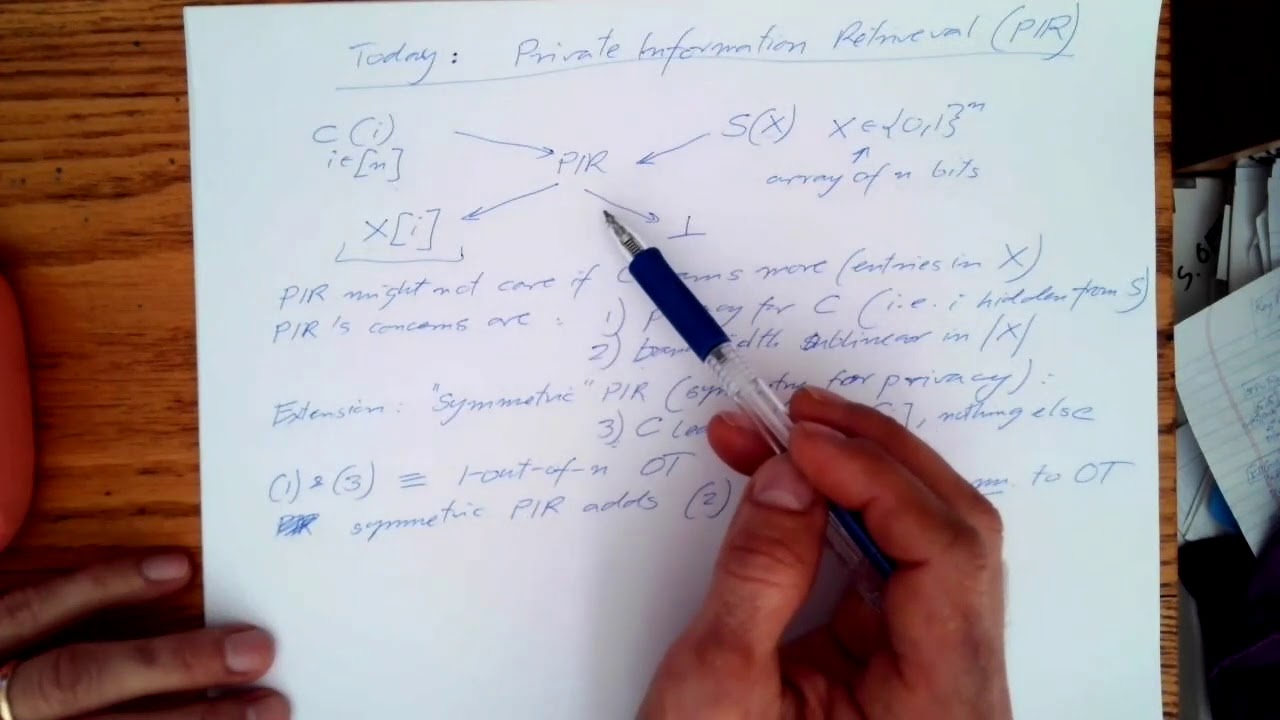 Today: Private Information Retrieval (PIR)
C(i) S(X) X∈{0,1}^n
i∈[n] PIR array of n bits
X[i] ⊥
PIR might not care if C more (entries in X)
PIR's concerns are: 1) for C (i.e. i hidden from S)
2) sublinear in |X|
Extension: "Symmetric" PIR ( for privacy):
3) C ], nothing else
(1) & (3) ≡ 1-out-of-n OT to OT
symmetric PIR adds (2)